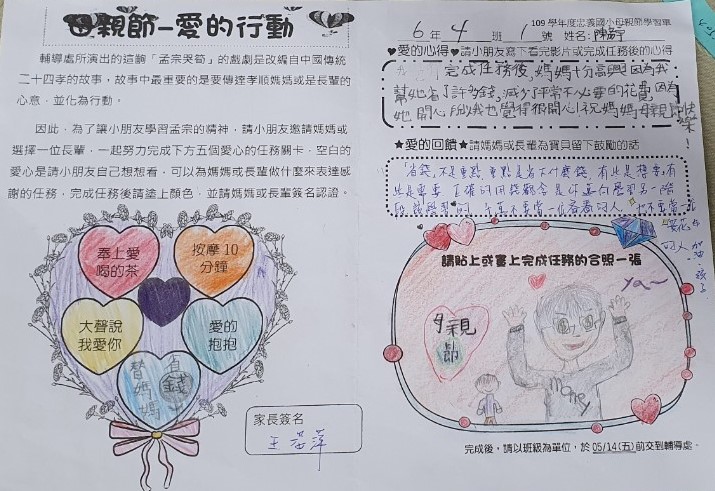 母親節–愛的行動
輔導處所演出的這齣「孟宗哭筍」的戲劇是改編自中國傳統
二十四孝的故事，故事中最重要的是要傳達孝順媽媽或是長輩的
心意，並化為行動。
因此，為了讓小朋友學習孟宗的精神，請小朋友邀請媽媽或
選擇一位長輩，一起努力完成下方五個愛心的任務關卡，空白的
愛心是請小朋友自己想想看，可以為媽媽或長輩做什麼來表達感
謝的任務，完成任務後請塗上顏色，並請媽媽或長輩簽名認證。
奉上愛
喝的茶
按摩 10
分鐘
大聲說
我愛你
愛的
抱抱
替媽媽
省錢
家長簽名
109 學年度忠義國小母親節學習單
6 年 4 班 1 號 姓名:
♥愛的心得♥請小朋友寫下看完影片或完成任務後的心得
完成任務後,媽媽十分高興因為我
幫她省了許多錢,減少了平常不必要的花費,因為
她開心所以我也覺得很開心!祝媽媽母親節快
樂!
★愛的回饋★請媽媽或長輩為寶貝留下鼓勵的話
「省錢」不是重點,重點是省下什麼錢,有些是想要,有
些是需要
加油,孩子
請貼上或畫上完成任務的合照一張
ya~
母親
節
money
完成後，請以班級為單位，於 05/14(五)前交到輔導處。